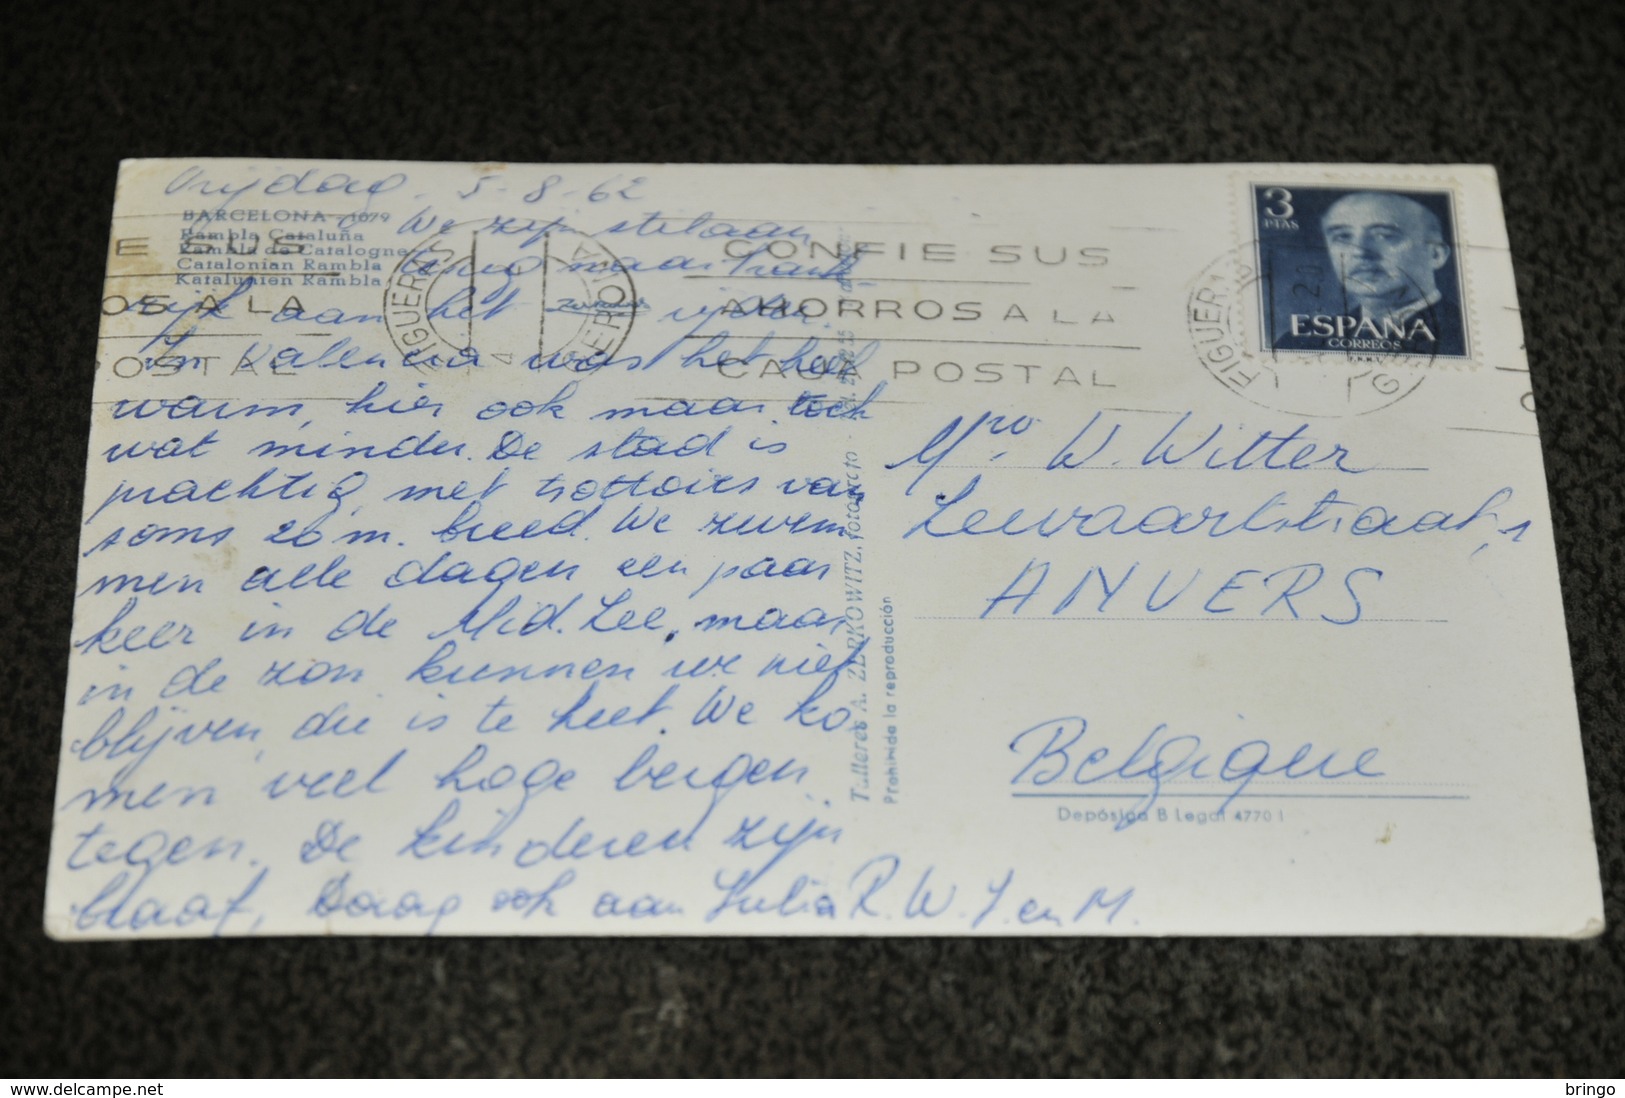 Vrijdag. 5-8-62
BARCELONA - 1079
Rambla Cataluña
Rambla de Catalogne
Catalonian Rambla
Katalunien Rambla
We zijn stilaan
terug naar Frank
rijk aan het rijden.
In Valencia was het heel
warm, hier ook maar toch
wat minder. De stad is
prachtig, met trottoirs van
soms 26 m. breed. We zwem
men alle dagen een paar
keer in de Mid. Zee, maar
in de zon kunnen we niet
blijven, die is te heet. We ko
men veel hoge bergen
tegen. De kinderen zijn
braaf, Daag ook aan Julia R. W. J. en M.
E SUS
OS A LA
POSTAL
FIGUERAS
GERONA
CONFIE SUS
AHORROS A LA
CAJA POSTAL
3
PTAS
ESPAÑA
CORREOS
F.N.M.T.
FIGUERAS
W. Witter
ANVERS
Belgique
Talleres A. ZERKOWITZ, fotografo
Prohibida la reproducción
B Legal 4770 I
bringo
delcampe.net